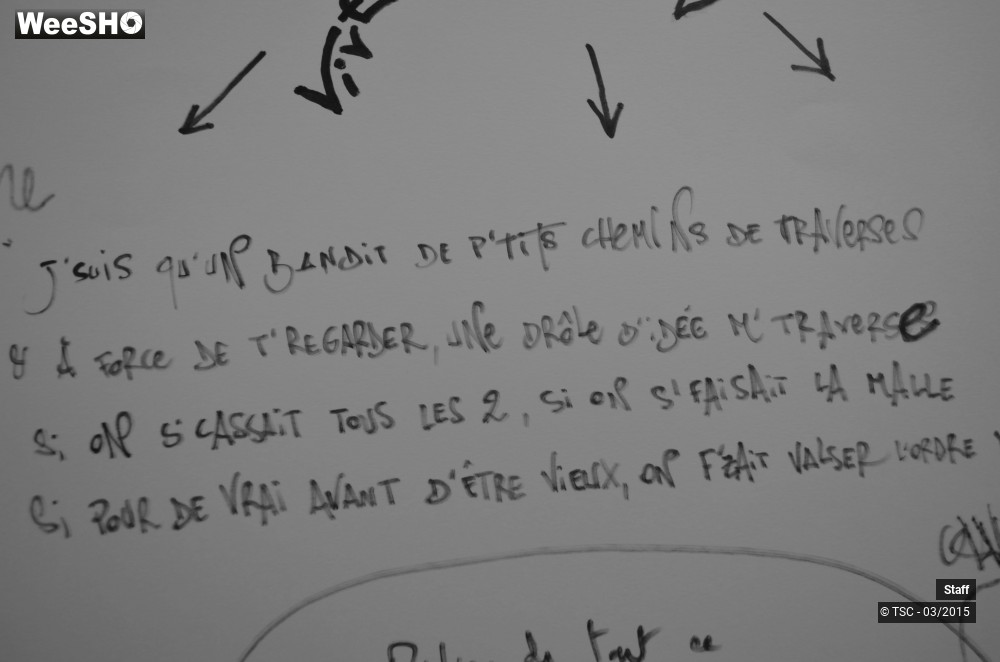 WeeSHO
J'suis qu'un BANDIT DE P'TITS CHEMINS DE TRAVERSES
& À FORCE DE T'REGARDER, UNE DRÔLE D'IDÉE M'TRAVERSE
Si, ON S'CASSAIT TOUS LES 2, Si ON S'FAISAIT LA MALLE
Si POUR DE VRAI AVANT D'ÊTRE VIEUX, ON F'ZAIT VALSER L'ORDRE
Staff
© TSC - 03/2015
tout ce